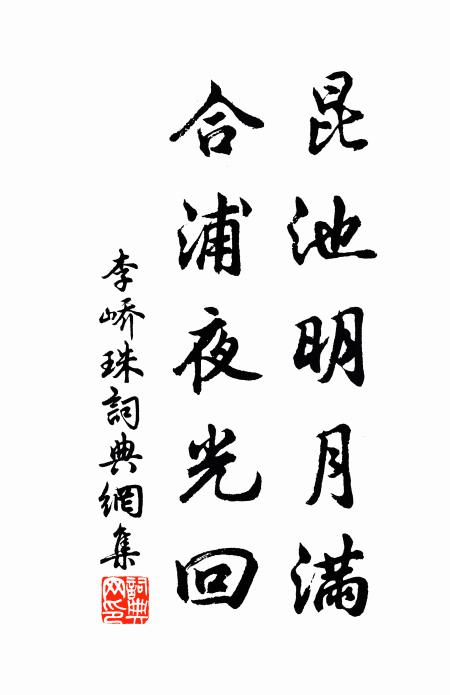 昆池明月满
合浦夜光回
李峤珠詞典網集
詞典网印